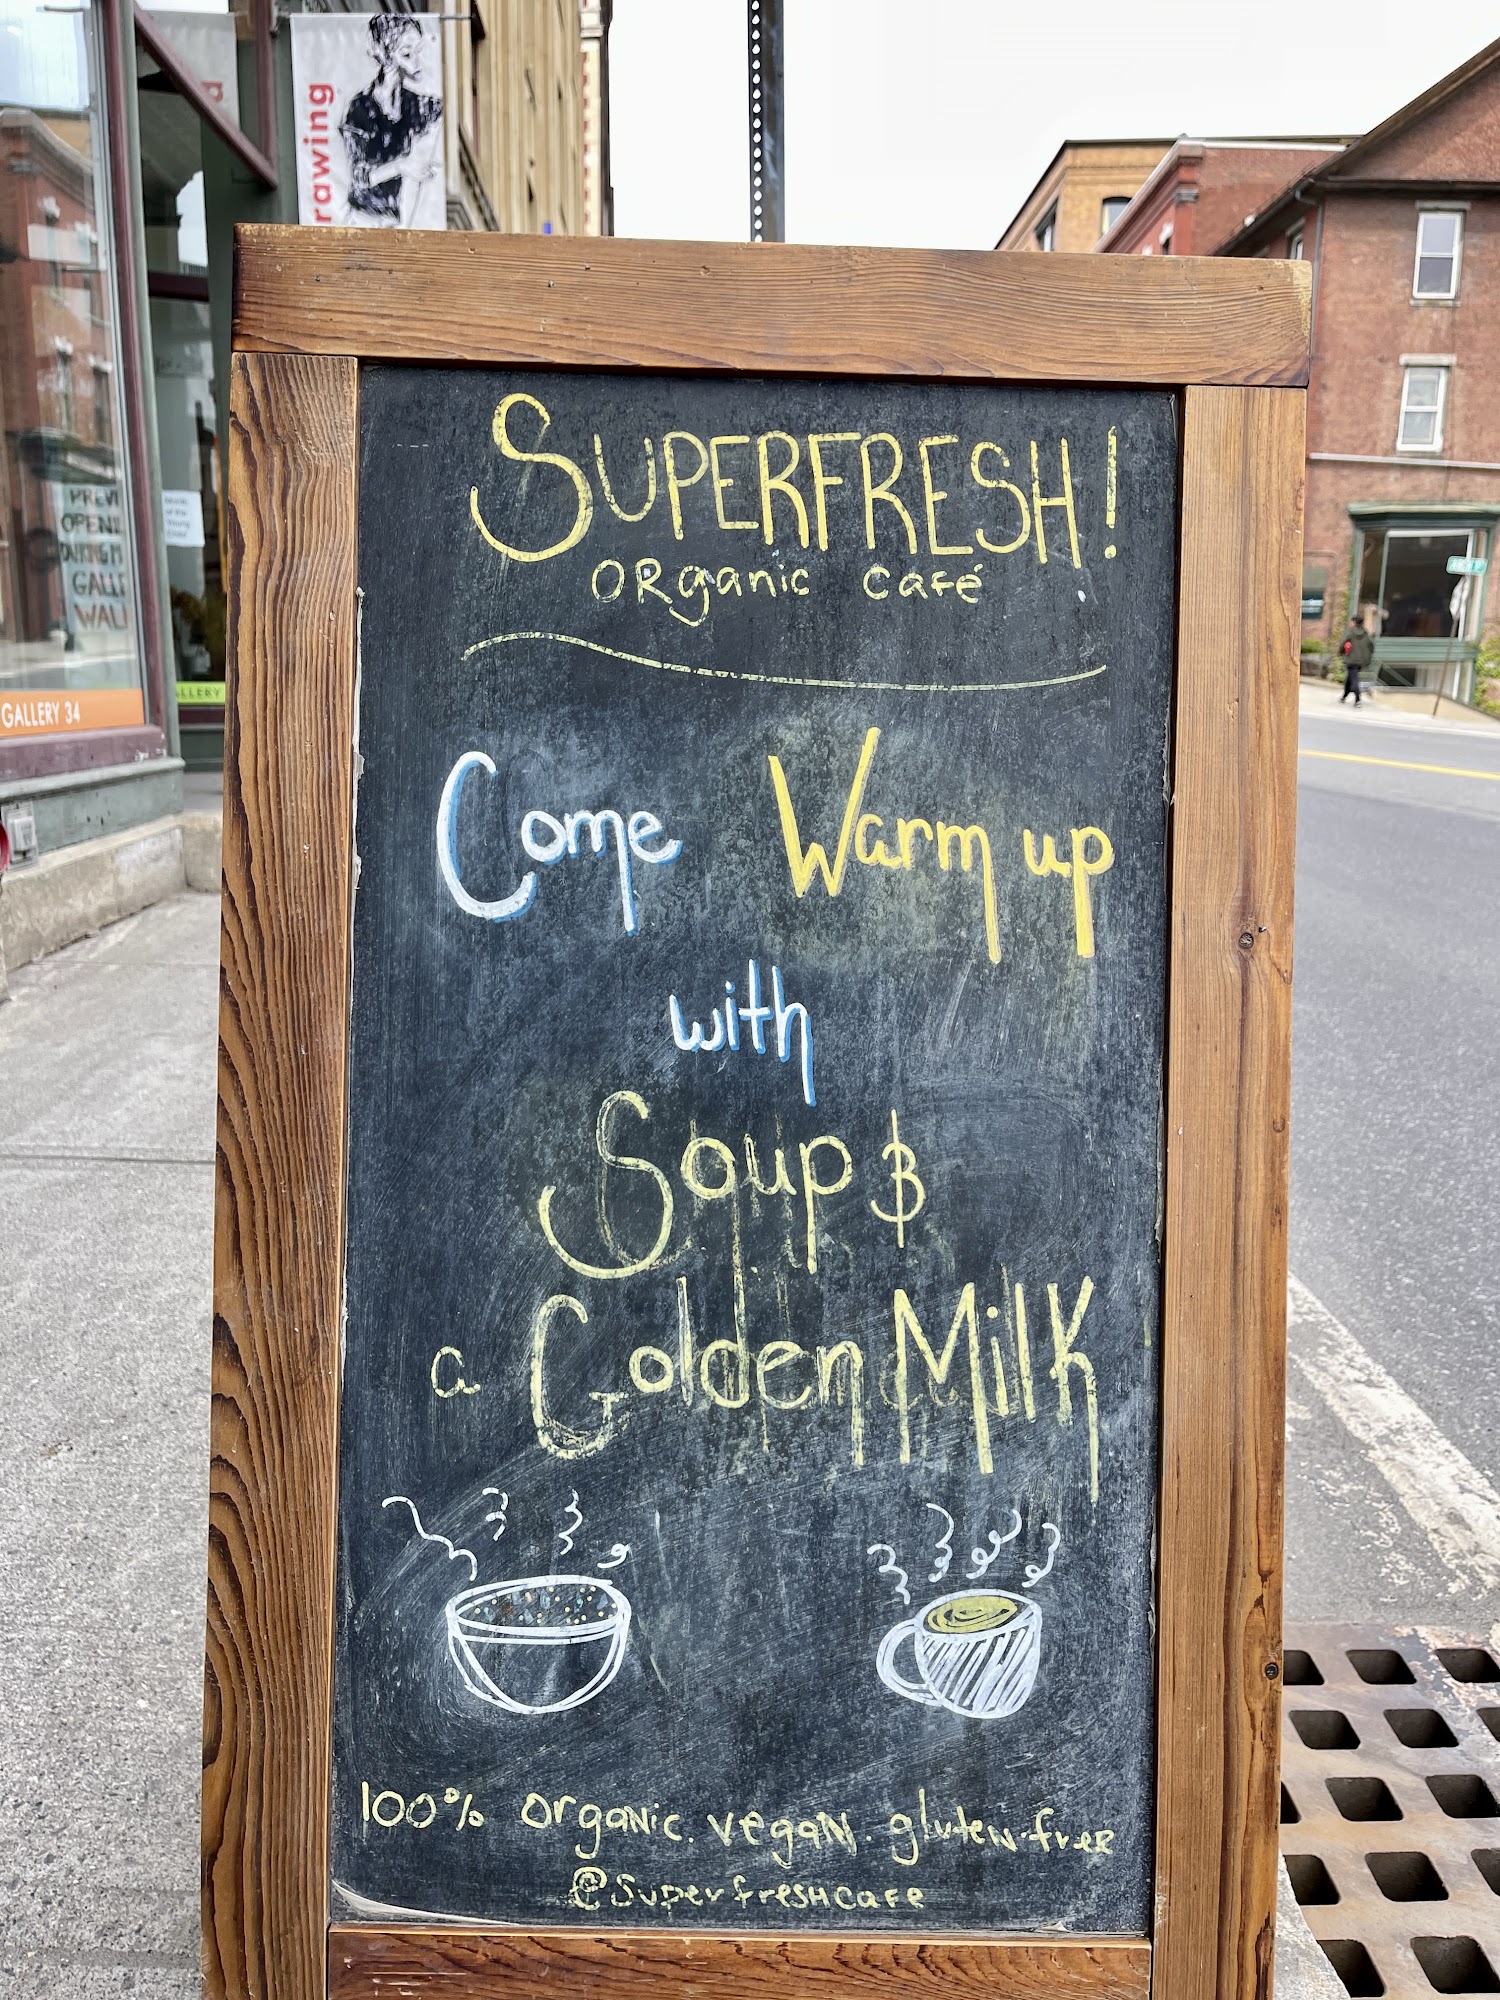 rawing
PREVI
OPENI
DURING M
GALLE
WALL
GALLERY 34
ALLERY
SUPERFRESH!
ORganic café
Come Warm up
with
Soup &
a Golden Milk
100% organic. vegan. gluten-free
@SuperfresHcafe